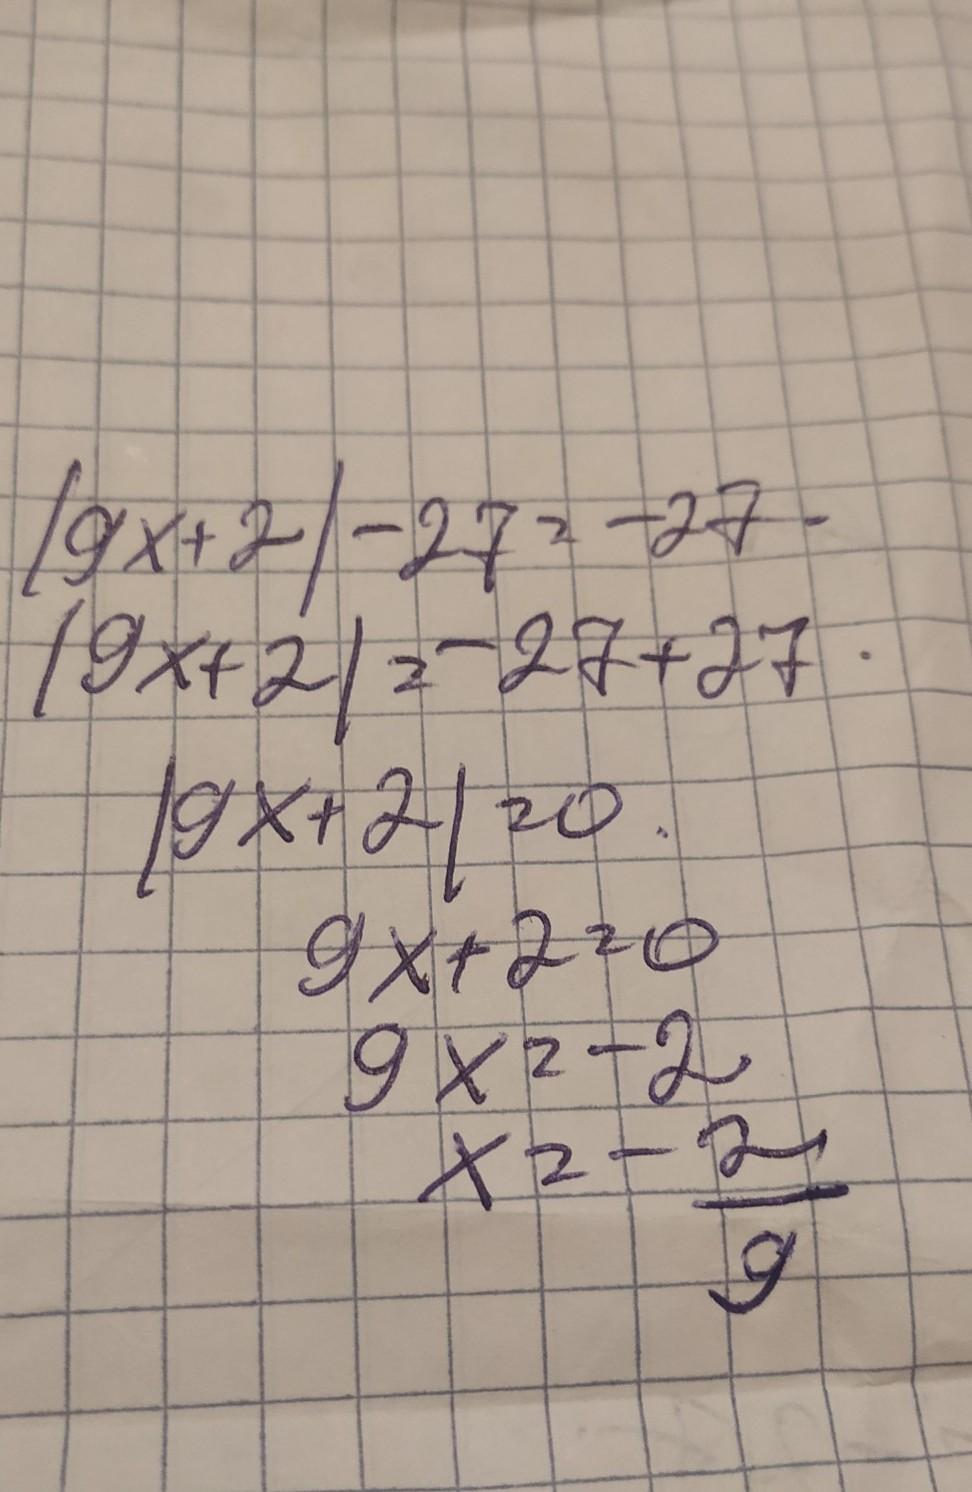 |9x+2|-27=-27.
|9x+2|=-27+27.
|9x+2|=0.
9x+2=0
9x=-2
x=-2/9